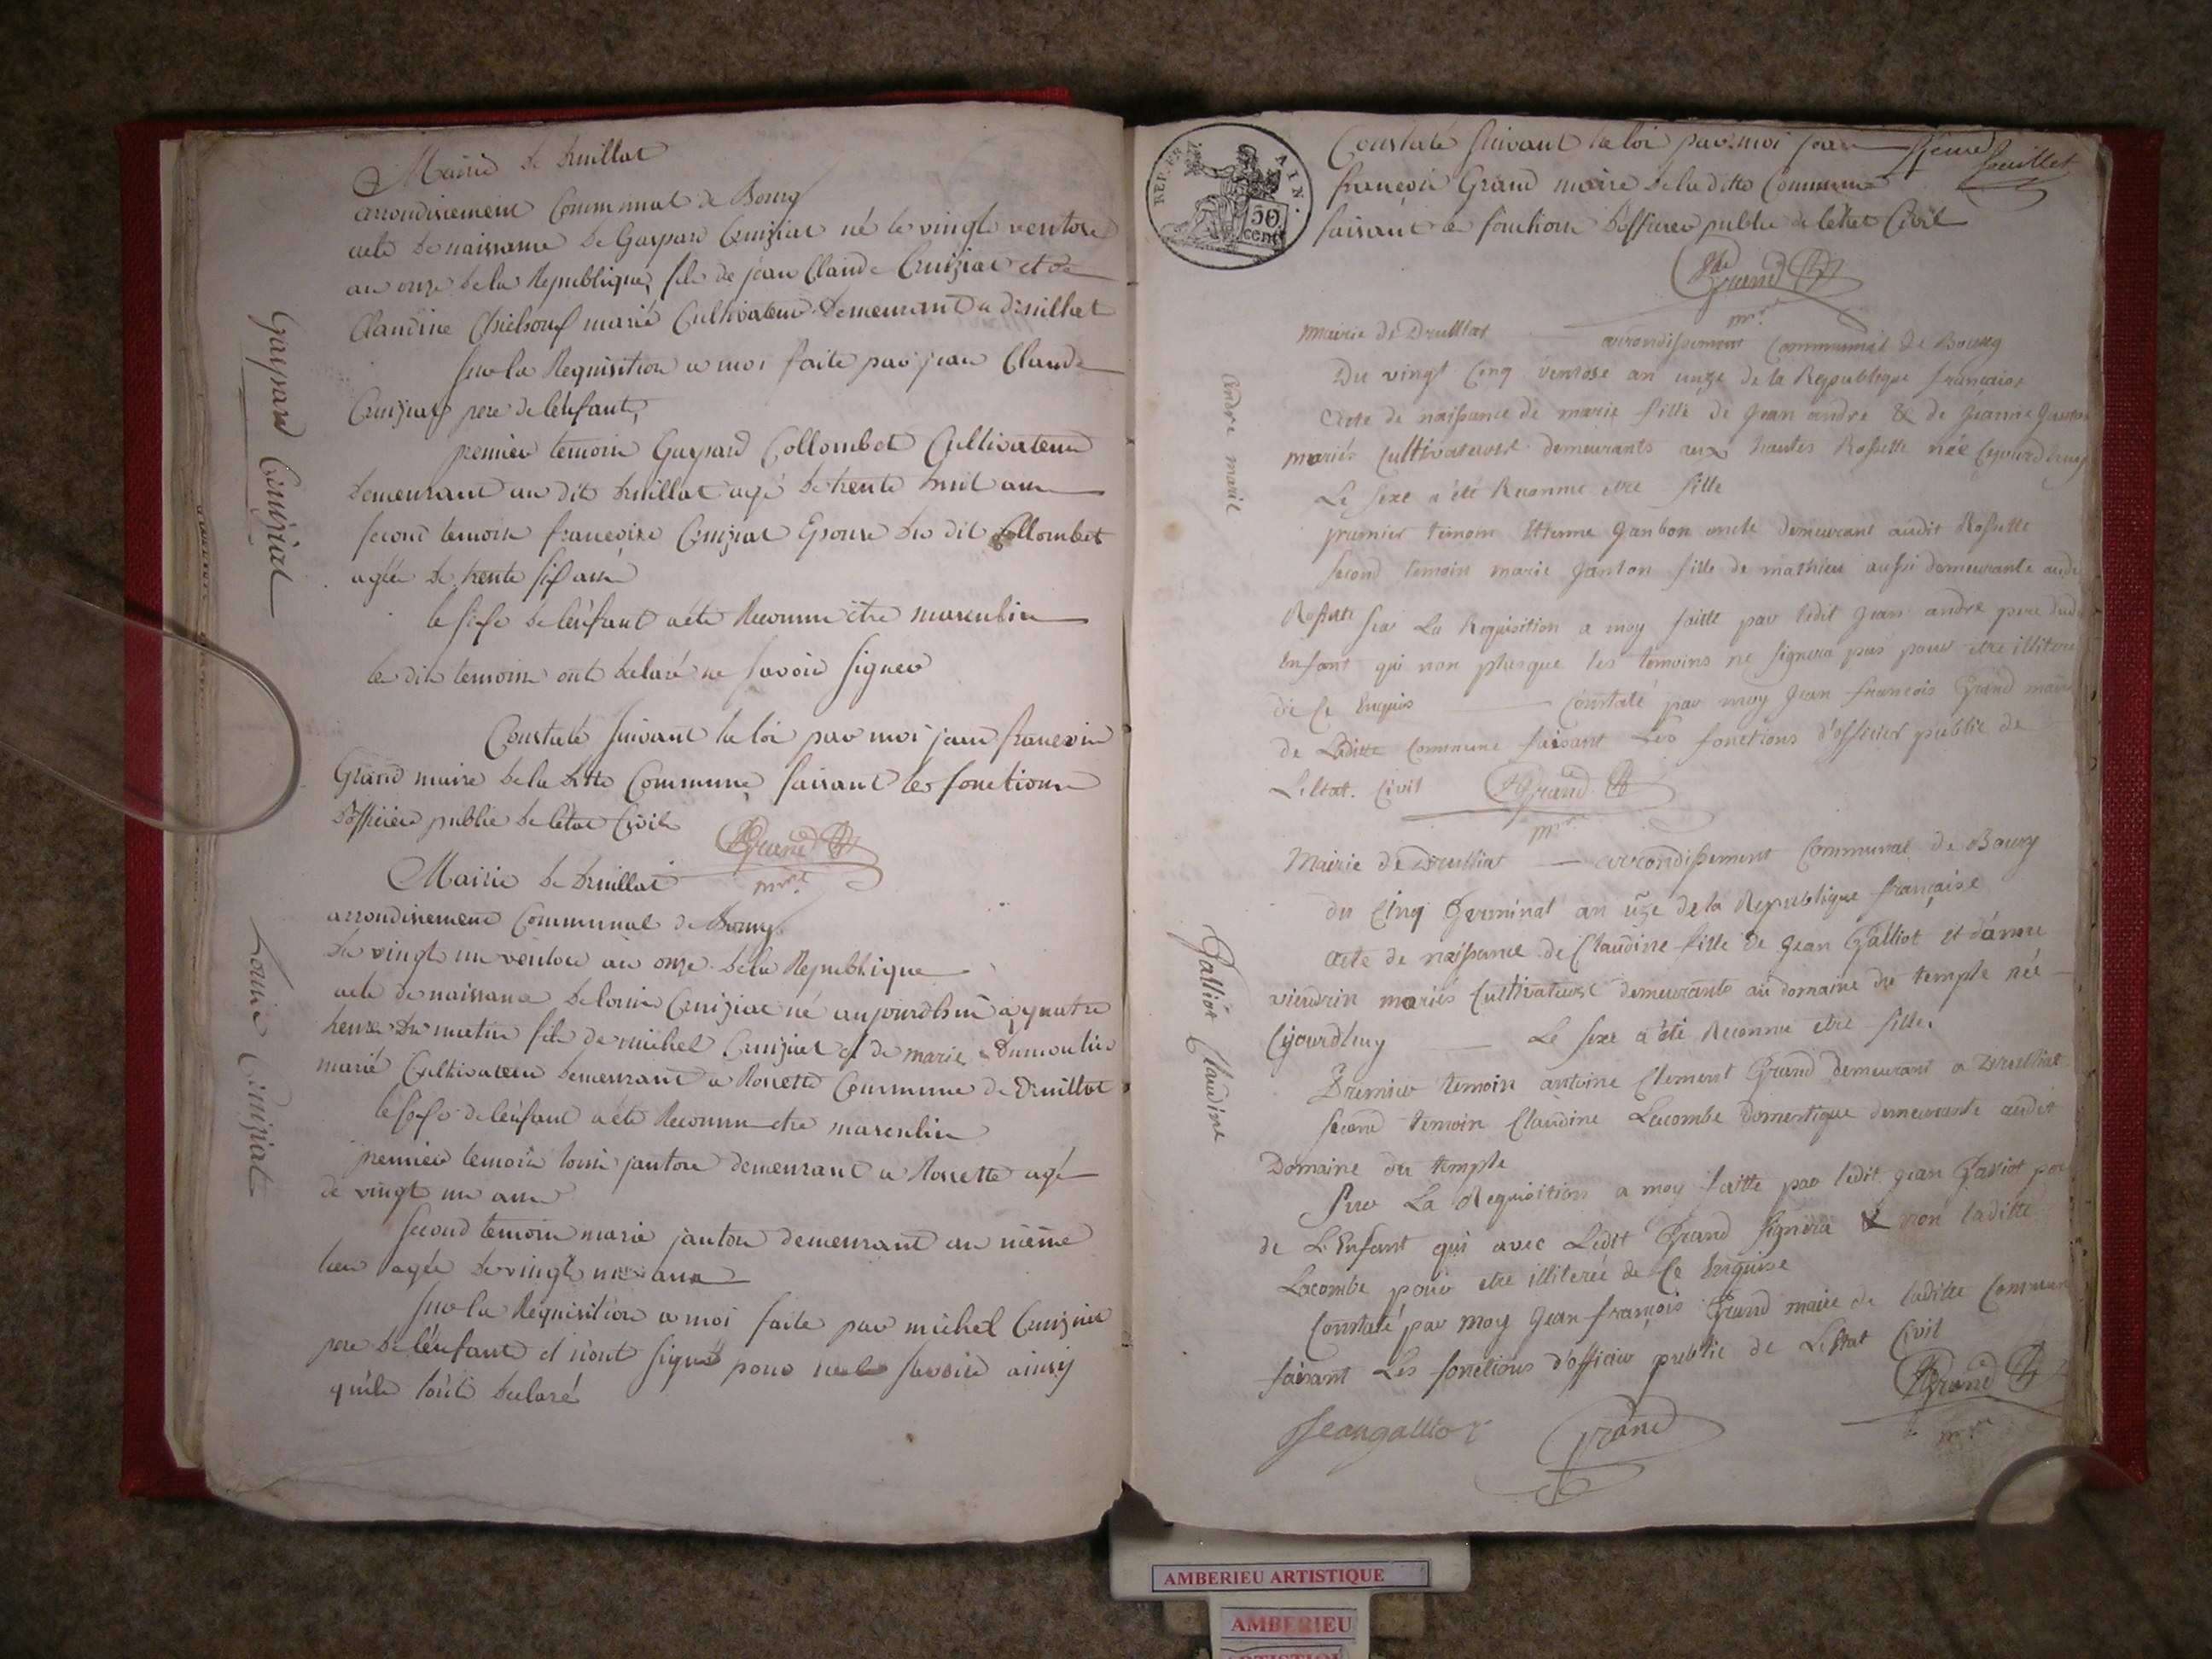 Mairie de druillat
arrondissement Communal de Bourg
acte de naissance de Gaspard Cruiziat né le vingt ventose
an onze de la Republique, fils de jean Claude Cruiziat et de
Claudine marié Cultivateur demeurant a druillat
Sur la Requisition a moi faite par jean Claude
Cruiziat pere de l'enfant,
premier temoin Gaspard Collombet Cultivateur
demeurant au dit druillat agé de trente huit ans
second temoin francoise Cruiziat Epouse du dit Collombet
agée de trente six ans
le sexe de l'enfant a ete Reconnu être masculin
les dits temoins ont declaré ne savoir signer
Constaté suivant la loi par moi jean francois
Grand maire de la ditte Commune faisant les fonctions
d'officier public de l'etat Civil
Grand
mre
Mairie de druillat
arrondissement Communal de Bourg
du vingt un ventose an onze de la Republique
acte de naissance de louis Cruiziat né aujourdhui a quatre
heures du matin fils de michel Cruiziat et de marie dumoulin
marié Cultivateur demeurant a Rossette Commune de Druillat
le sexe de l'enfant a ete Reconnu etre masculin
premier temoin louis janton demeurant a Rossette agé
de vingt un ans
second temoin marie janton demeurant au même
lieu agée de vingt ans
sur la Requisition a moi faite par michel Cruiziat
pere de l'enfant et n'ont signé pour ne le savoir ainsy
qu'ils l'ont declaré
Gaspard Cruiziat
Louis Cruiziat
REP. FRA. AIN.
50
cent
feuillet
Constaté suivant la loi par moi jean
francois Grand maire de la ditte Commune
faisant les fonctions d'officier public de l'etat Civil
Grand
mre
Mairie de Druillat arrondissement Communal de Bourg
Du vingt Cinq ventose an unze de la Republique francaise
Acte de naissance de marie fille de Jean andré & de Jeanne Janton
mariés Cultivateurs demeurants aux hautes Rossette née Cejourdhuy
Le sexe a été Reconnu etre fille
premier temoin Etienne Janbon oncle demeurant audit Rossette
second temoin marie Janton fille de mathieu aussi demeurante audit
Rossette sur La Requisition a moy faitte par ledit Jean andré pere dudit
Enfant qui non plus que les temoins ne signera pas pour etre illiteré
de Ce Enquis Constaté par moy Jean francois Grand maire
de Laditte Commune faisant Les fonctions d'officier public de
L'Etat Civil Grand
mre
Mairie de Druillat arrondissement Communal de Bourg
du Cinq Germinal an unze de la Republique française
Acte de naissance de Claudine fille de Jean Galliot et d'anne
mariés Cultivateurs demeurants au domaine du temple née
Cejourdhuy Le sexe a été Reconnu etre fille.
Premier temoin antoine Clement Grand demeurant a Druillat
second temoin Claudine Lacombe domestique demeurante audit
Domaine du temple
Sur La Requisition a moy faitte par ledit Jean Galliot pere
de L'Enfant qui avec Ledit Grand signera & non laditte
Lacombe pour etre illiterée de Ce Enquise
Constaté par moy Jean françois Grand maire de laditte Commune
faisant Les fonctions d'officier public de L'Etat Civil
Jean galliot Grand Grand
mre
andre marie
Galliot Claudine
AMBERIEU ARTISTIQUE
AMBERIEU
ARTISTIQUE